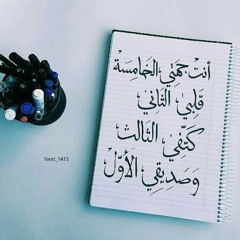 أنت جهتي الخامسة
قلبي الثاني
كتفي الثالث
وصديقي الأول
Next_1415